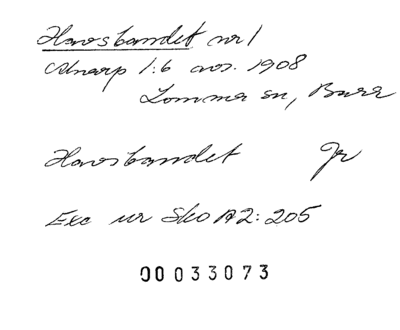 Havsbandet nr 1
Alnarp 1:6 avs. 1908
Lomma sn, Bara
Havsbandet Jr
Exc ur Sko A2: 205
00033073